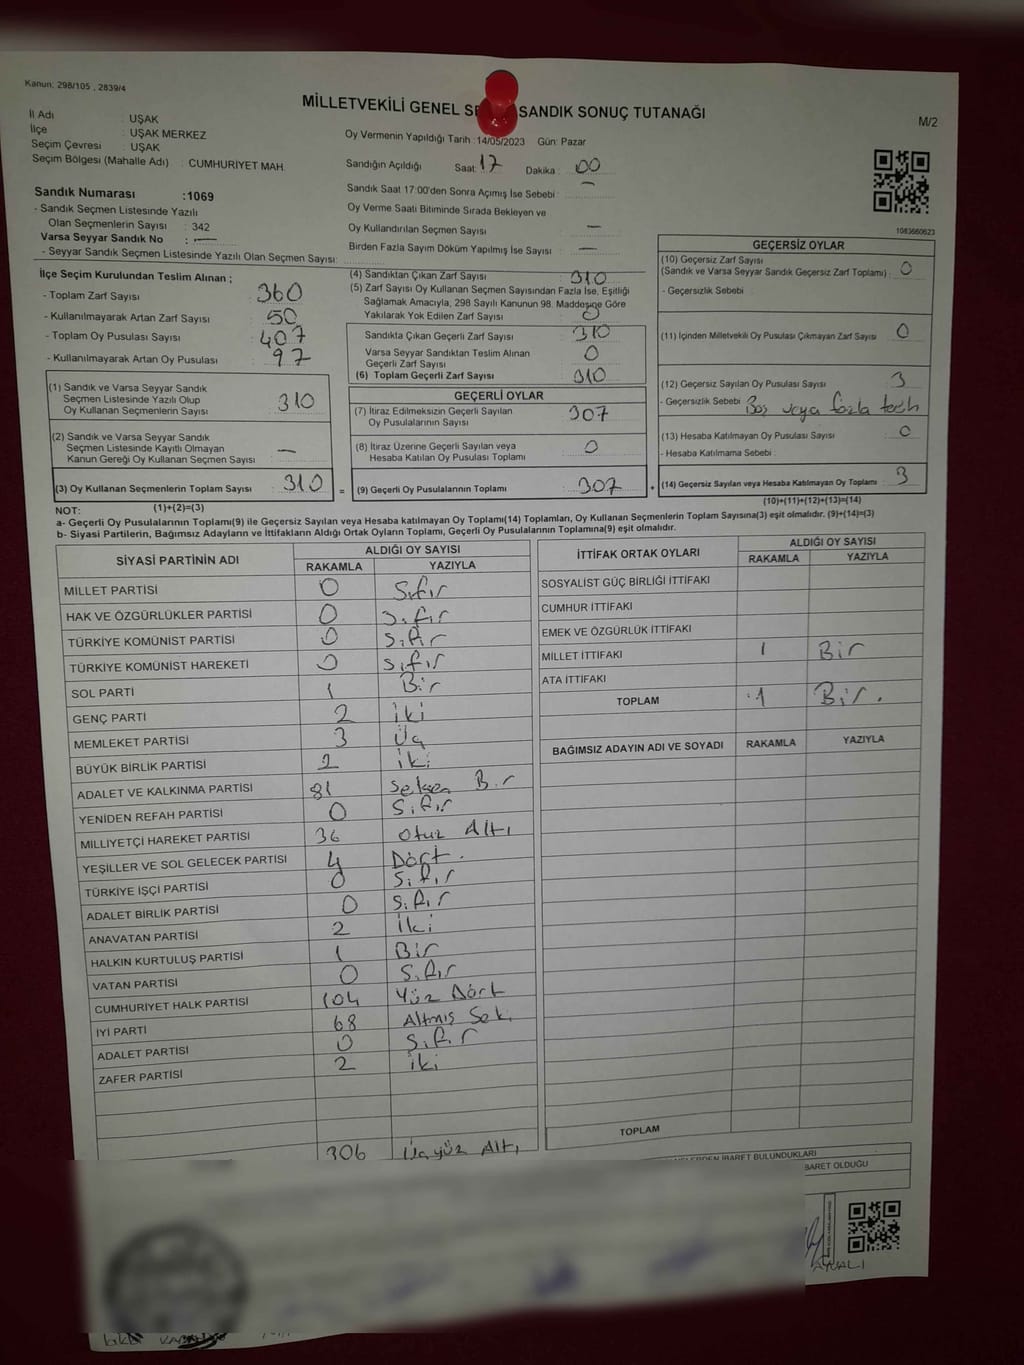 Kanun: 298/105 , 2839/4
MİLLETVEKİLİ GENEL SANDIK SONUÇ TUTANAĞI
M/2
İl Adı : UŞAK
İlçe : UŞAK MERKEZ
Seçim Çevresi : UŞAK
Seçim Bölgesi (Mahalle Adı) : CUMHURIYET MAH.
Oy Vermenin Yapıldığı Tarih : 14/05/2023 Gün: Pazar
Sandığın Açıldığı Saat: 17 Dakika : 00
Sandık Saat 17:00'den Sonra Açımış İse Sebebi : —
Oy Verme Saati Bitiminde Sırada Bekleyen ve
Oy Kullandırılan Seçmen Sayısı : —
Birden Fazla Sayım Döküm Yapılmış İse Sayısı : —
Sandık Numarası :1069
- Sandık Seçmen Listesinde Yazılı
Olan Seçmenlerin Sayısı : 342
Varsa Seyyar Sandık No : —
- Seyyar Sandık Seçmen Listesinde Yazılı Olan Seçmen Sayısı:
1083660623
İlçe Seçim Kurulundan Teslim Alınan ;
- Toplam Zarf Sayısı : 360
- Kullanılmayarak Artan Zarf Sayısı : 50
- Toplam Oy Pusulası Sayısı : 407
- Kullanılmayarak Artan Oy Pusulası : 97
(1) Sandık ve Varsa Seyyar Sandık
Seçmen Listesinde Yazılı Olup
Oy Kullanan Seçmenlerin Sayısı : 310
(2) Sandık ve Varsa Seyyar Sandık
Seçmen Listesinde Kayıtlı Olmayan
Kanun Gereği Oy Kullanan Seçmen Sayısı : —
(3) Oy Kullanan Seçmenlerin Toplam Sayısı : 310 =
(1)+(2)=(3)
(4) Sandıktan Çıkan Zarf Sayısı : 310
(5) Zarf Sayısı Oy Kullanan Seçmen Sayısından Fazla İse, Eşitliği
Sağlamak Amacıyla, 298 Sayılı Kanunun 98. Maddesine Göre
Yakılarak Yok Edilen Zarf Sayısı : 0
Sandıkta Çıkan Geçerli Zarf Sayısı : 310
Varsa Seyyar Sandıktan Teslim Alınan
Geçerli Zarf Sayısı : 0
(6) Toplam Geçerli Zarf Sayısı : 310
GEÇERLİ OYLAR
(7) İtiraz Edilmeksizin Geçerli Sayılan
Oy Pusulalarının Sayısı : 307
(8) İtiraz Üzerine Geçerli Sayılan veya
Hesaba Katılan Oy Pusulası Toplamı : 0
(9) Geçerli Oy Pusulalarının Toplamı : 307 +
GEÇERSİZ OYLAR
(10) Geçersiz Zarf Sayısı
(Sandık ve Varsa Seyyar Sandık Geçersiz Zarf Toplamı) : 0
- Geçersizlik Sebebi :
(11) İçinden Milletvekili Oy Pusulası Çıkmayan Zarf Sayısı : 0
(12) Geçersiz Sayılan Oy Pusulası Sayısı : 3
- Geçersizlik Sebebi : Boş veya fazla
(13) Hesaba Katılmayan Oy Pusulası Sayısı : 0
- Hesaba Katılmama Sebebi :
(14) Geçersiz Sayılan veya Hesaba Katılmayan Oy Toplamı : 3
(10)+(11)+(12)+(13)=(14)
NOT:
a- Geçerli Oy Pusulalarının Toplamı(9) ile Geçersiz Sayılan veya Hesaba katılmayan Oy Toplamı(14) Toplamları, Oy Kullanan Seçmenlerin Toplam Sayısına(3) eşit olmalıdır. (9)+(14)=(3)
b- Siyasi Partilerin, Bağımsız Adayların ve İttifakların Aldığı Ortak Oyların Toplamı, Geçerli Oy Pusulalarının Toplamına(9) eşit olmalıdır.
SİYASİ PARTİNİN ADI ALDIĞI OY SAYISI
RAKAMLA YAZIYLA
MİLLET PARTİSİ 0 Sıfır
HAK VE ÖZGÜRLÜKLER PARTİSİ 0 Sıfır
TÜRKİYE KOMÜNİST PARTİSİ 0 Sıfır
TÜRKİYE KOMÜNİST HAREKETİ 0 Sıfır
SOL PARTİ 1 Bir
GENÇ PARTİ 2 iki
MEMLEKET PARTİSİ 3 Üç
BÜYÜK BİRLİK PARTİSİ 2 iki
ADALET VE KALKINMA PARTİSİ 81 Seksen Bir
YENİDEN REFAH PARTİSİ 0 Sıfır
MİLLİYETÇİ HAREKET PARTİSİ 36 Otuz Altı
YEŞİLLER VE SOL GELECEK PARTİSİ 4 Dört.
TÜRKİYE İŞÇİ PARTİSİ 0 Sıfır
ADALET BİRLİK PARTİSİ 0 Sıfır
ANAVATAN PARTİSİ 2 iki
HALKIN KURTULUŞ PARTİSİ 1 Bir
VATAN PARTİSİ 0 Sıfır
CUMHURİYET HALK PARTİSİ 104 Yüz Dört
İYİ PARTİ 68 Altmış Seki
ADALET PARTİSİ 0 Sıfır
ZAFER PARTİSİ 2 iki
306 Üçyüz Altı
İTTİFAK ORTAK OYLARI ALDIĞI OY SAYISI
RAKAMLA YAZIYLA
SOSYALİST GÜÇ BİRLİĞİ İTTİFAKI
CUMHUR İTTİFAKI
EMEK VE ÖZGÜRLÜK İTTİFAKI
MİLLET İTTİFAKI 1 Bir
ATA İTTİFAKI
TOPLAM 1 Bir.
BAĞIMSIZ ADAYIN ADI VE SOYADI RAKAMLA YAZIYLA
TOPLAM
İBARET BULUNDUKLARI
BARET OLDUĞU